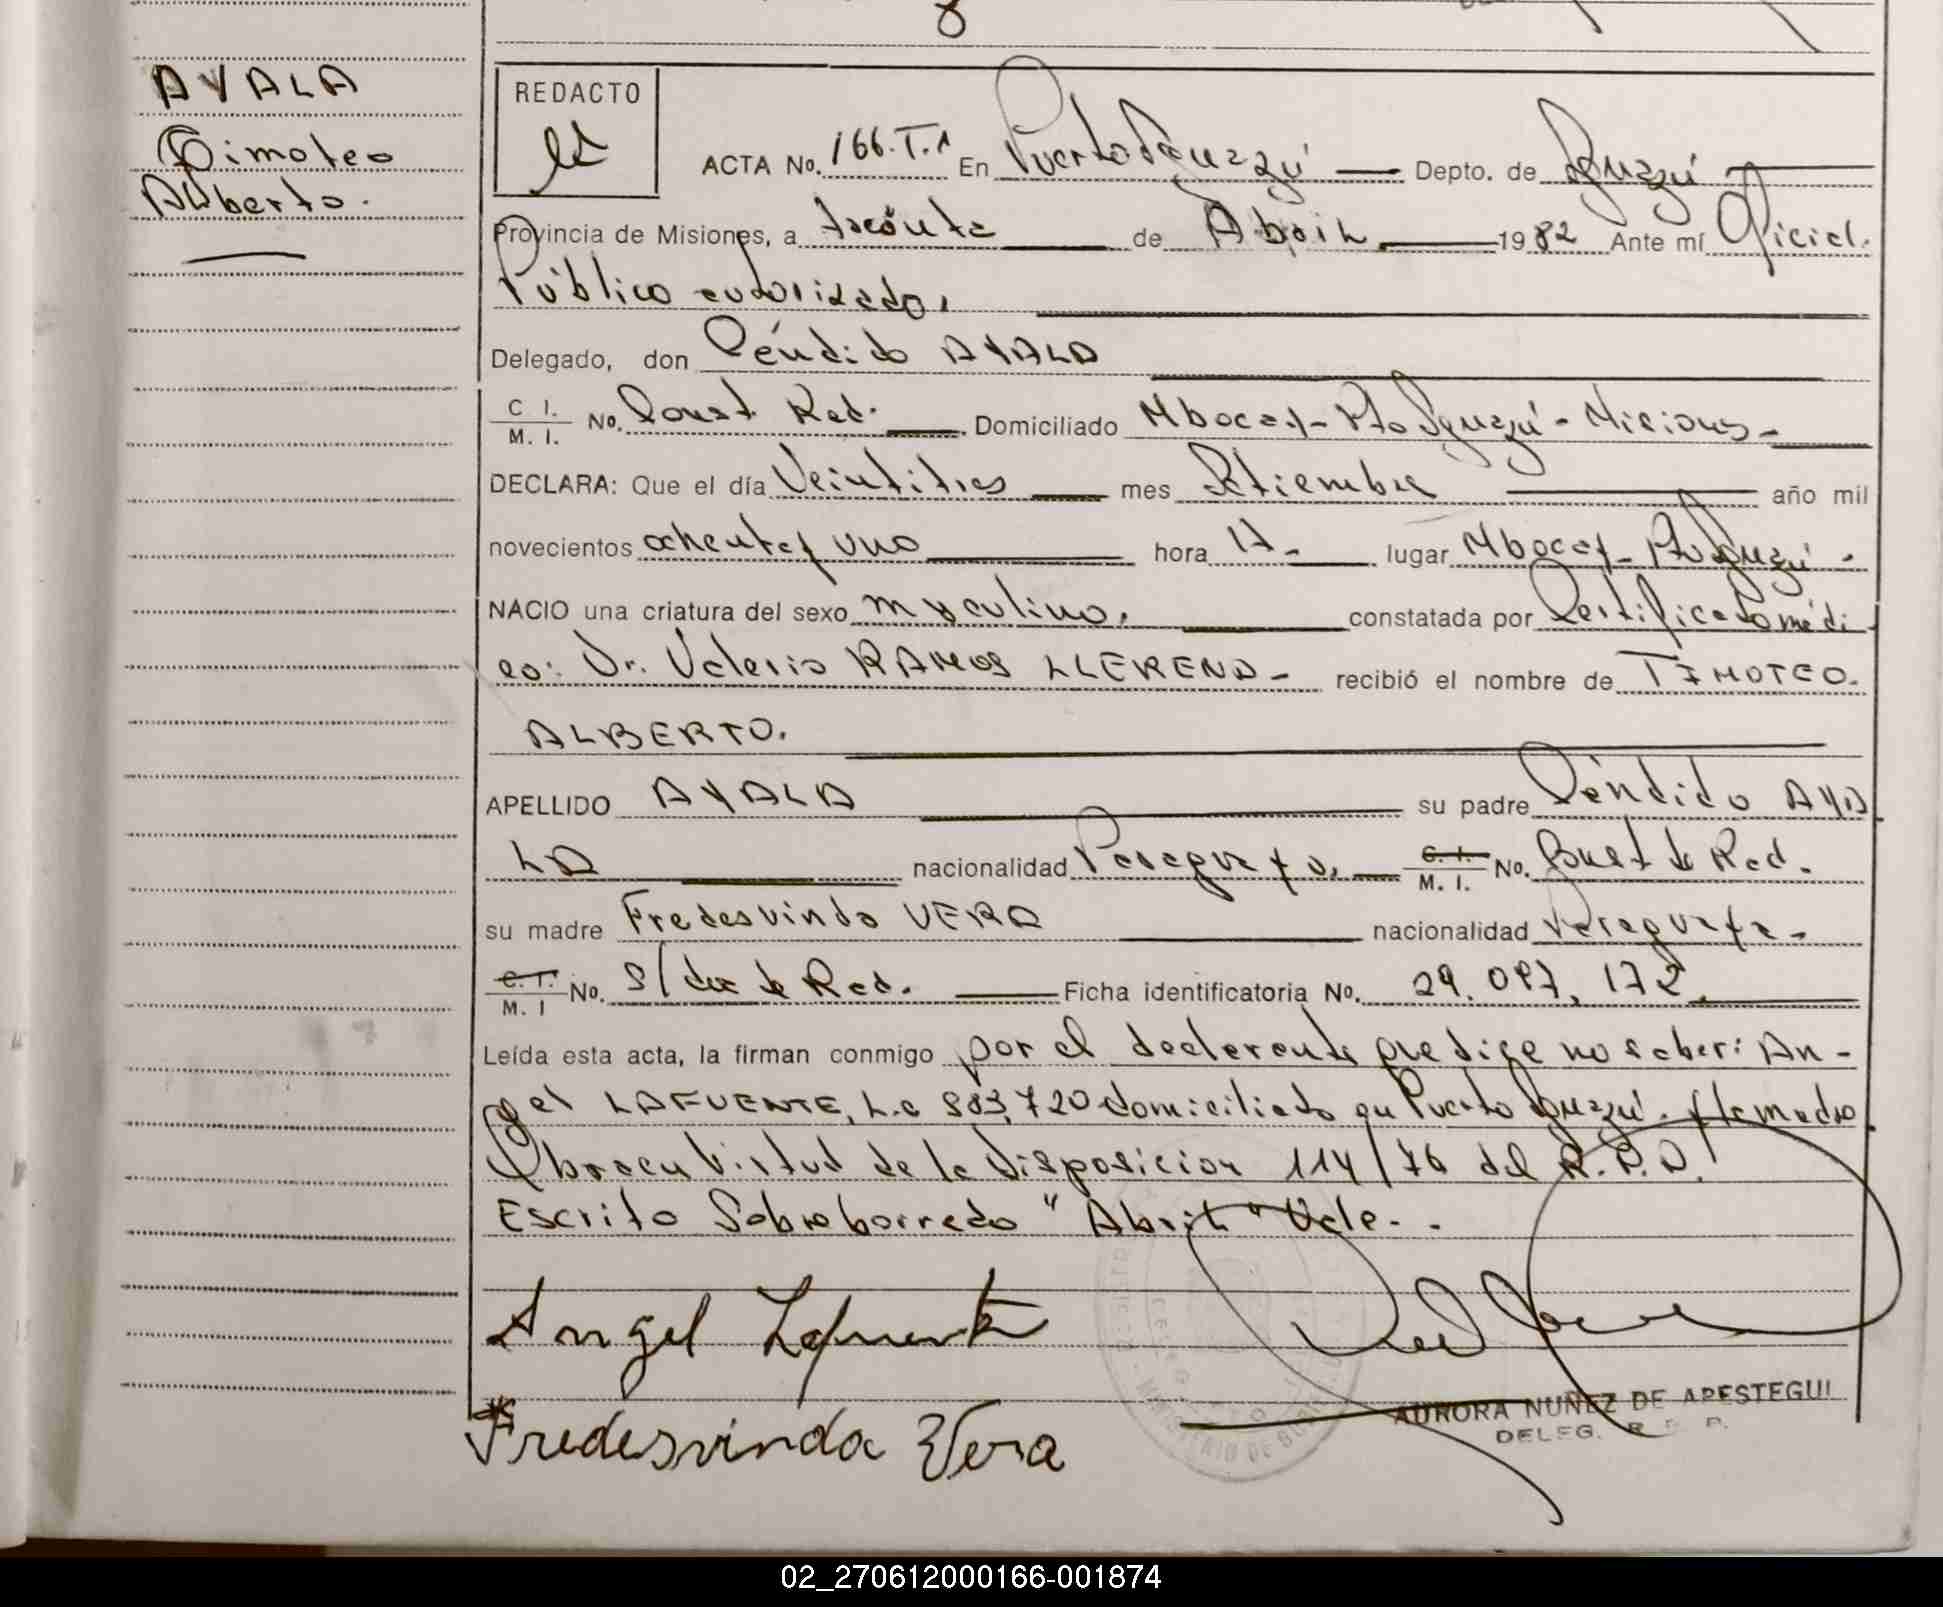 AYALA
Timoteo
Alberto.
REDACTO
ACTA No. 166.T.1 En Puerto Iguazú Depto. de Iguazú
Provincia de Misiones, a treinta de Abril 1982 Ante mí Oficial
Público autorizado,
Delegado, don Cándido AYALA
C I.
M. I. No. Const. Rad. Domiciliado Mbocay-Pto Iguazú-Misiones-
DECLARA: Que el día Veintitres mes Setiembre año mil
novecientos ochentay uno hora 17- lugar Mbocay-Pto Iguazú-
NACIO una criatura del sexo masculino, constatada por Certificado médi
co: Dr. Valerio RAMOS LLERENA- recibió el nombre de TIMOTEO.
ALBERTO.
APELLIDO AYALA su padre Cándido AYA
LA nacionalidad Paraguayo, C. I.
M. I. No. Const de Rad.
su madre Fredesvinda VERA nacionalidad Paraguaya-
C. I.
M. I No. S/ doc de Rad. Ficha identificatoria No. 29.097.172
Leída esta acta, la firman conmigo por el declarante que dice no saber: An-
gel LAFUENTE, L.e 803,720 domiciliado en Puerto Iguazú. Llamado
Obra en Virtud de la Disposicion 114/76 del R.P.P.
Escrito Sobreborrado "Abril" Vale-.
Angel Lafuente
Fredesvinda Vera
AURORA NUÑEZ DE APESTEGUI
DELEG. R. P.
MINISTERIO DE GOBIERNO
02_270612000166-001874